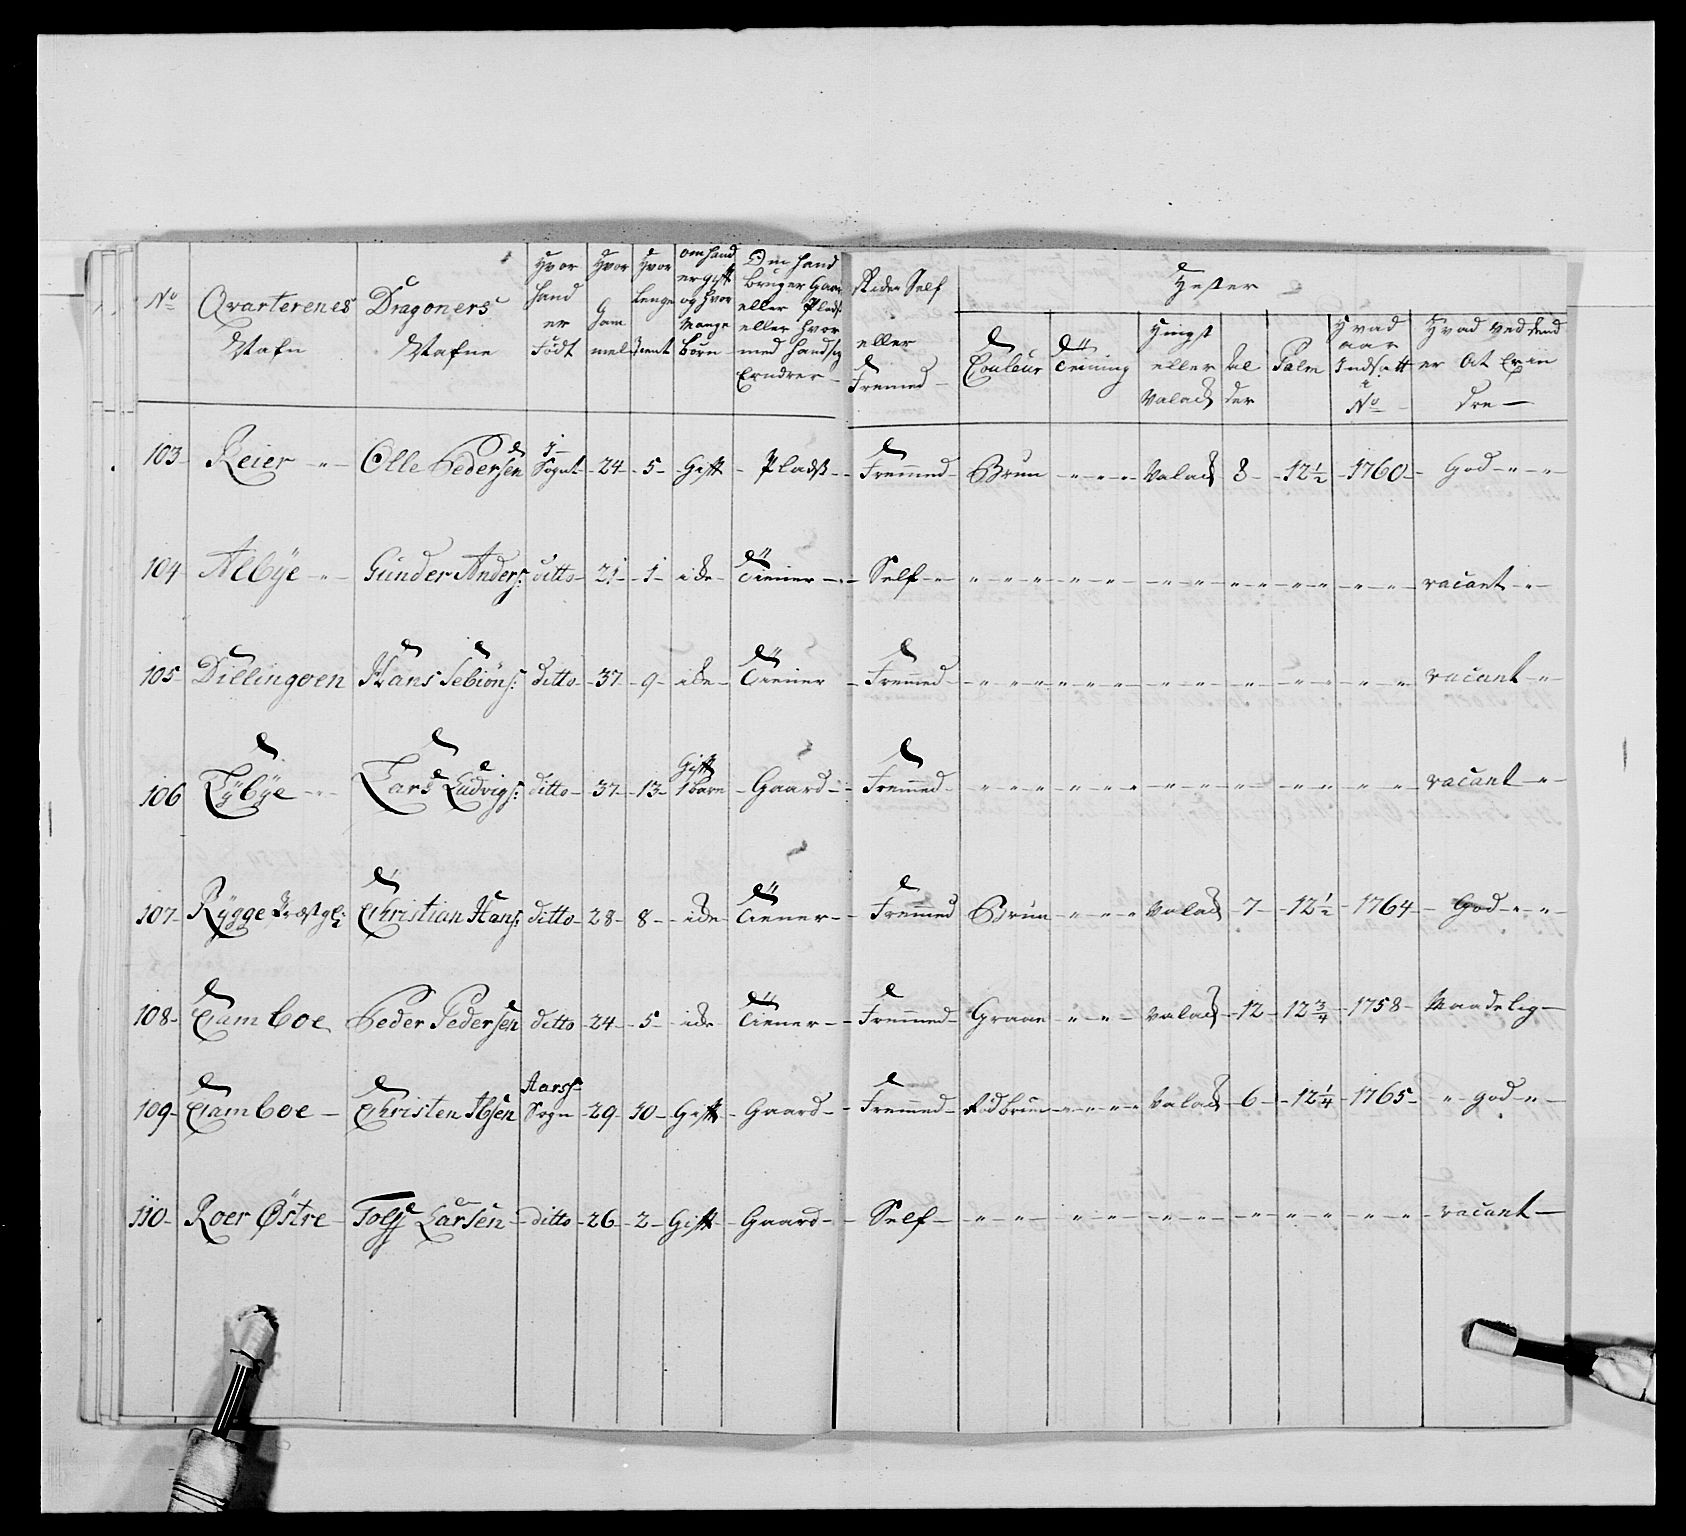 No Qvarterenes Nafn | Dragoners Nafne | Hvor hand er Födt | Hvor Gam mel | Hvor lenge tient | om hand er gift og Hvor mange Börn | Om hand bruger Gaar eller Plads eller hvor med handsig Ernærer | Rider Self eller Fremed | Hester
Couleur | Teining | Hingst eller Valack | Al der | Palm | Hvad aar Indsatt i No | Hvad ved dend er At Erin dre
103 Reier Olle Pedersen i Sognt 24 5 Gift Pladß Fremmed Brun " " " Valack 8 12 1/2 1760 God " "
104 Albÿe Gunder Anders: ditto 21 1 ide Tiener Self " " " " " " " " " vacant "
105 Dillingöen Hans Tebiöns: ditto 37 9 ide Tiener Fremmed " " " " " " " " vacant "
106 Tÿbÿe Lars Ludvigs: ditto 37 13 Gift 1 barn Gaard Fremmed " " " " " " " " vacant "
107 Rÿgge Præstgl: Christian Hans: ditto 28 8 ide Tiener Fremmed Brun " " " Valack 7 12 1/2 1764 God " "
108 Camboe Peder Pedersen ditto 24 5 ide Tiener Fremmed Graae " " Valack 12 12 3/4 1758 Maadelig
109 Camboe Christen Ibsen Aars: Sogn 29 10 Gift Gaard Fremmed Rödbrun " " " Valack 6 12 1/4 1765 " god "
110 Roer Östre Tolf Larsen ditto 26 2 Gift Gaard Self " " " " " " " " vacant